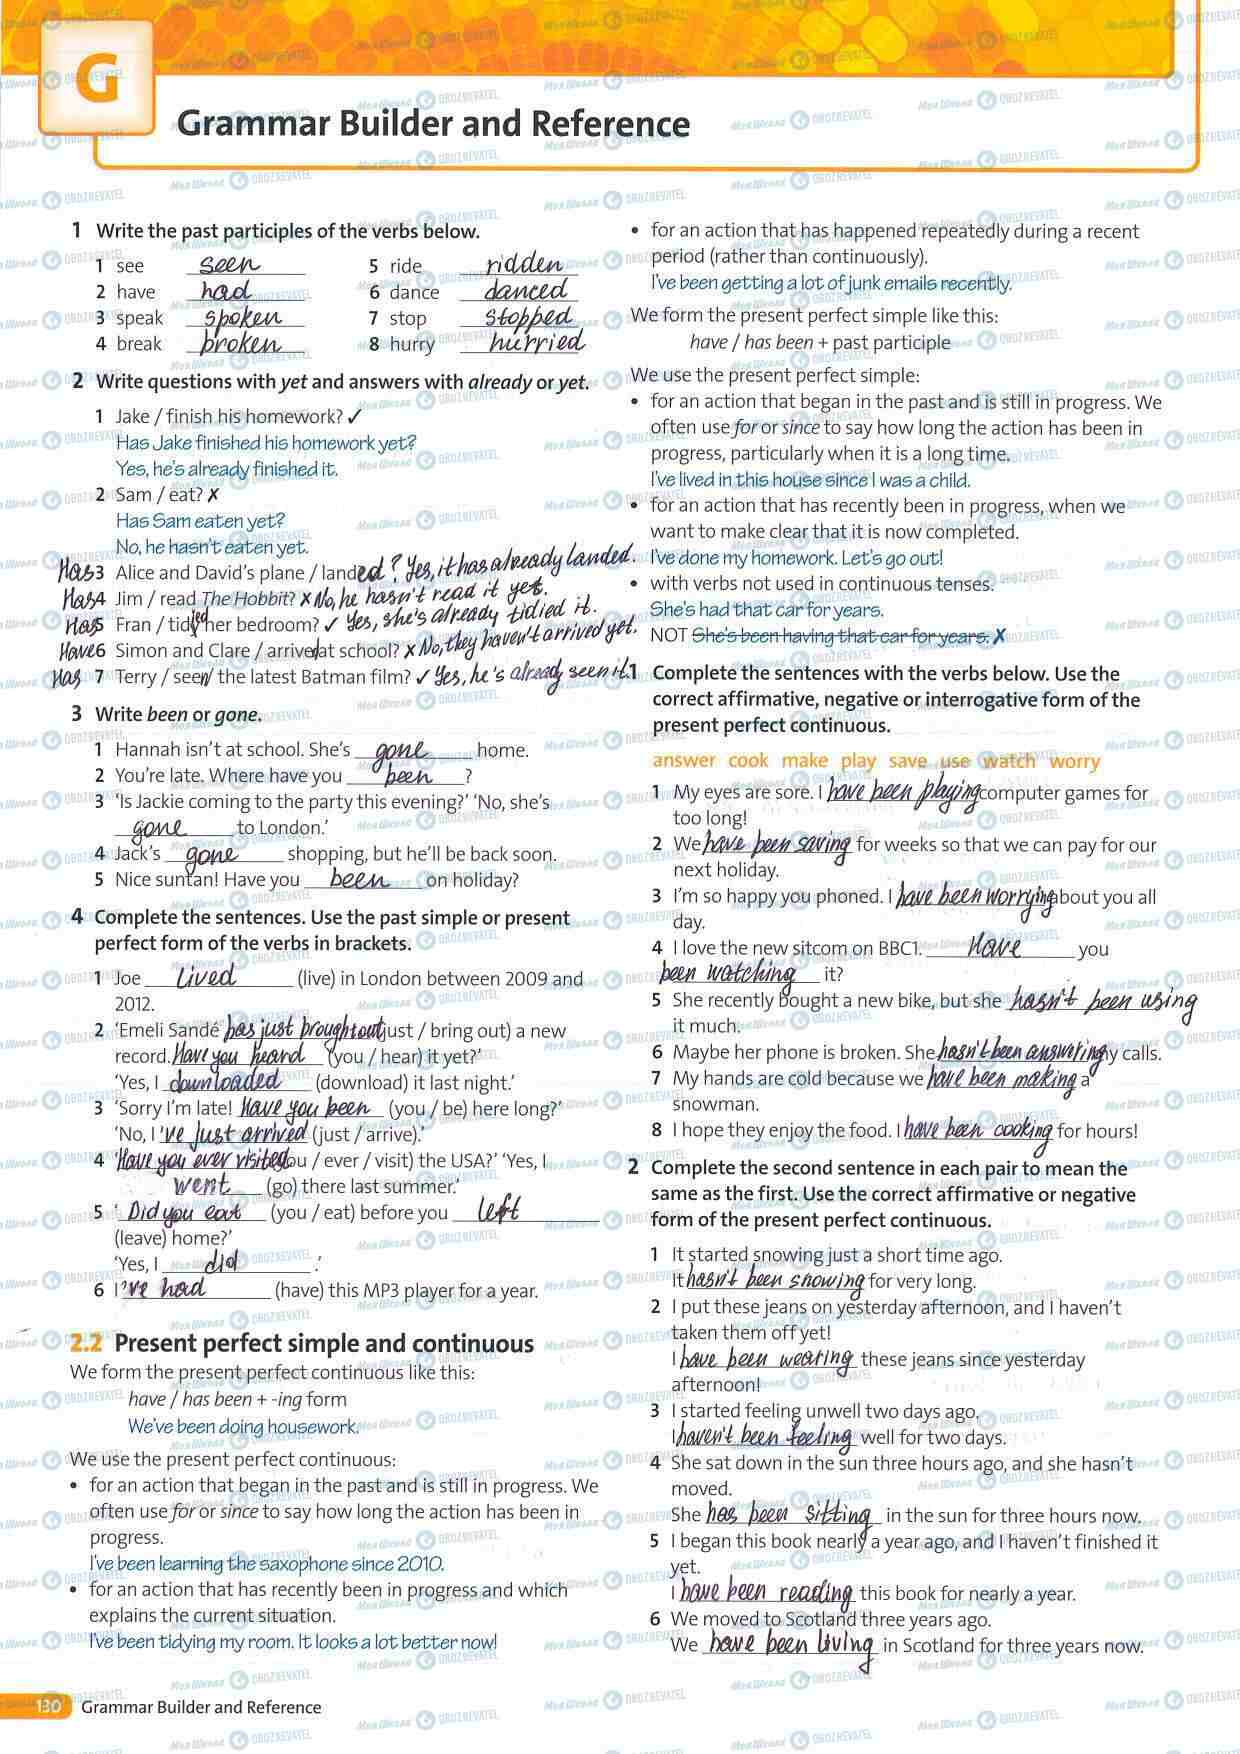 G
Grammar Builder and Reference
1 Write the past participles of the verbs below.
1 see seen
2 have had
3 speak spoken
4 break broken
5 ride ridden
6 dance danced
7 stop stopped
8 hurry hurried
2 Write questions with yet and answers with already or yet.
1 Jake / finish his homework? ✓
Has Jake finished his homework yet?
Yes, he's already finished it.
2 Sam / eat? ✗
Has Sam eaten yet?
No, he hasn't eaten yet.
Has 3 Alice and David's plane / landed? Yes, it has already landed.
Has 4 Jim / read The Hobbit? ✗ No, he hasn't read it yet.
Has 5 Fran / tidied her bedroom? ✓ Yes, she's already tidied it.
Have 6 Simon and Clare / arrived at school? ✗ No, they haven't arrived yet.
Has 7 Terry / seen the latest Batman film? ✓ Yes, he's already seen it.
3 Write been or gone.
1 Hannah isn't at school. She's gone home.
2 You're late. Where have you been ?
3 'Is Jackie coming to the party this evening?' 'No, she's
gone to London.'
4 Jack's gone shopping, but he'll be back soon.
5 Nice suntan! Have you been on holiday?
4 Complete the sentences. Use the past simple or present
perfect form of the verbs in brackets.
1 Joe lived (live) in London between 2009 and
2012.
2 'Emeli Sandé has just brought out (just / bring out) a new
record. Have you heard (you / hear) it yet?'
'Yes, I downloaded (download) it last night.'
3 'Sorry I'm late! Have you been (you / be) here long?'
'No, I 've just arrived (just / arrive).'
4 'Have you ever visited (you / ever / visit) the USA?' 'Yes, I
went (go) there last summer.'
5 'Did you eat (you / eat) before you left
(leave) home?'
'Yes, I did .'
6 I 've had (have) this MP3 player for a year.
2.2 Present perfect simple and continuous
We form the present perfect continuous like this:
have / has been + -ing form
We've been doing housework.
We use the present perfect continuous:
• for an action that began in the past and is still in progress. We
often use for or since to say how long the action has been in
progress.
I've been learning the saxophone since 2010.
• for an action that has recently been in progress and which
explains the current situation.
I've been tidying my room. It looks a lot better now!
• for an action that has happened repeatedly during a recent
period (rather than continuously).
I've been getting a lot of junk emails recently.
We form the present perfect simple like this:
have / has been + past participle
We use the present perfect simple:
• for an action that began in the past and is still in progress. We
often use for or since to say how long the action has been in
progress, particularly when it is a long time.
I've lived in this house since I was a child.
• for an action that has recently been in progress, when we
want to make clear that it is now completed.
I've done my homework. Let's go out!
• with verbs not used in continuous tenses.
She's had that car for years.
NOT She's been having that car for years. ✗
1 Complete the sentences with the verbs below. Use the
correct affirmative, negative or interrogative form of the
present perfect continuous.
answer cook make play save use watch worry
1 My eyes are sore. I have been playing computer games for
too long!
2 We have been saving for weeks so that we can pay for our
next holiday.
3 I'm so happy you phoned. I have been worrying about you all
day.
4 I love the new sitcom on BBC1. Have you
been watching it?
5 She recently bought a new bike, but she hasn't been using
it much.
6 Maybe her phone is broken. She hasn't been answering my calls.
7 My hands are cold because we have been making a
snowman.
8 I hope they enjoy the food. I have been cooking for hours!
2 Complete the second sentence in each pair to mean the
same as the first. Use the correct affirmative or negative
form of the present perfect continuous.
1 It started snowing just a short time ago.
It hasn't been snowing for very long.
2 I put these jeans on yesterday afternoon, and I haven't
taken them off yet!
I have been wearing these jeans since yesterday
afternoon!
3 I started feeling unwell two days ago.
I haven't been feeling well for two days.
4 She sat down in the sun three hours ago, and she hasn't
moved.
She has been sitting in the sun for three hours now.
5 I began this book nearly a year ago, and I haven't finished it
yet.
I have been reading this book for nearly a year.
6 We moved to Scotland three years ago.
We have been living in Scotland for three years now.
130 Grammar Builder and Reference